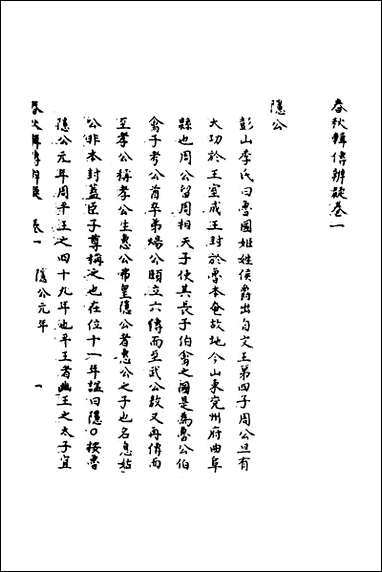 春秋輯傳辨疑卷一
隱公
彭山李氏曰魯國姬姓侯爵出自文王第四子周公旦有
大功於王室成王封於魯本奄故地今山東兖州府曲阜
縣也周公留周相天子使其長子伯禽之國是為魯公伯
禽子考公酋卒弟煬公熙立六傳而至武公敖又再傳而
至孝公稱孝公生惠公弗皇隱公者惠公之子也名息姑
公非本封蓋臣子尊稱之也在位十一年諡曰隱○按魯
隱公元年周平王之四十九年也平王者幽王之太子宜
春秋輯傳辨疑 卷一 隱公元年 一